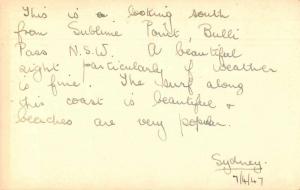 This is a looking south
from Sublime Point, Bulli
Pass N.S.W. A beautiful
sight particularly if weather
is fine. The surf along
this coast is beautiful &
beaches are very popular.
Sydney.
7/4/47